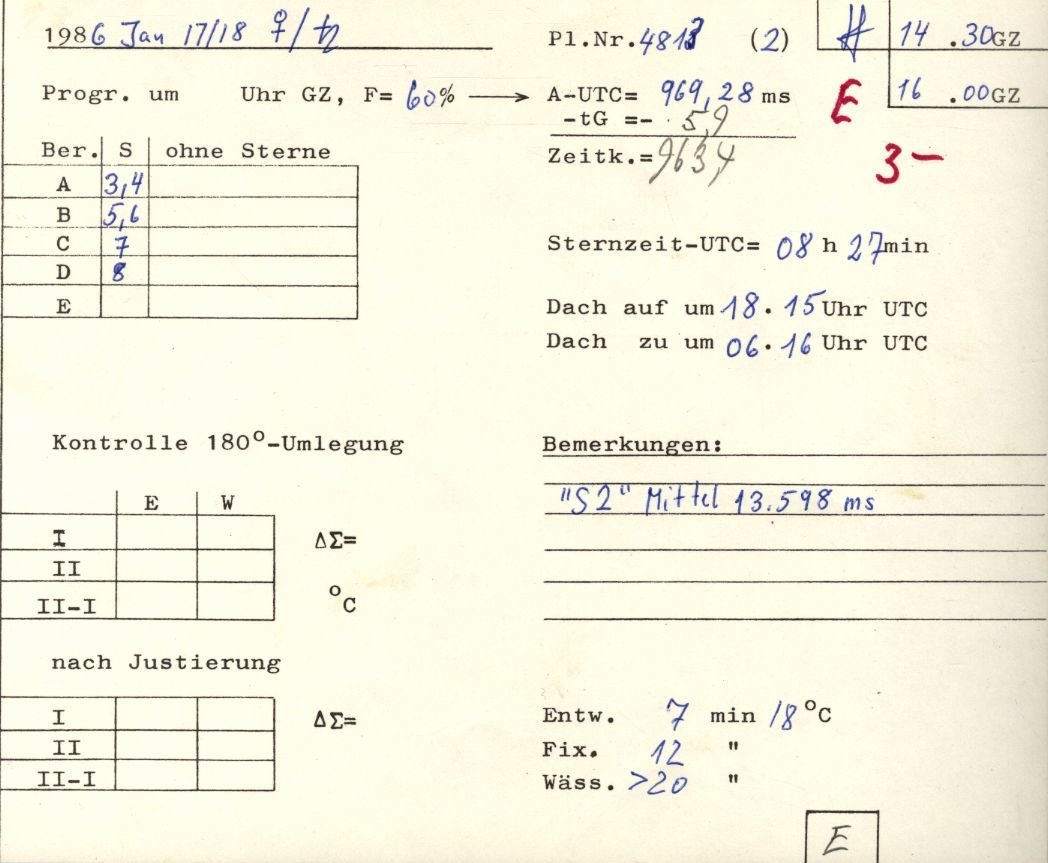 1986 Jan 17/18 ♀/♄ Pl.Nr. (2) # 14 .30GZ
Progr. um Uhr GZ, F= 60% → A-UTC= 969,28 ms E 16 .00GZ
-tG =- 5,9
Ber. S ohne Sterne Zeitk.= 963,4 3-
A 3,4
B 5,6
C 7 Sternzeit-UTC= 08 h 27min
D 8
E Dach auf um 18.15 Uhr UTC
Dach zu um 06.16 Uhr UTC
Kontrolle 180°-Umlegung Bemerkungen:
E W "S2" Mittel 13.598 ms
I ΔΣ=
II
II-I °C
nach Justierung
I ΔΣ= Entw. 7 min 18 °C
II Fix. 12 "
II-I Wäss. >20 "
E